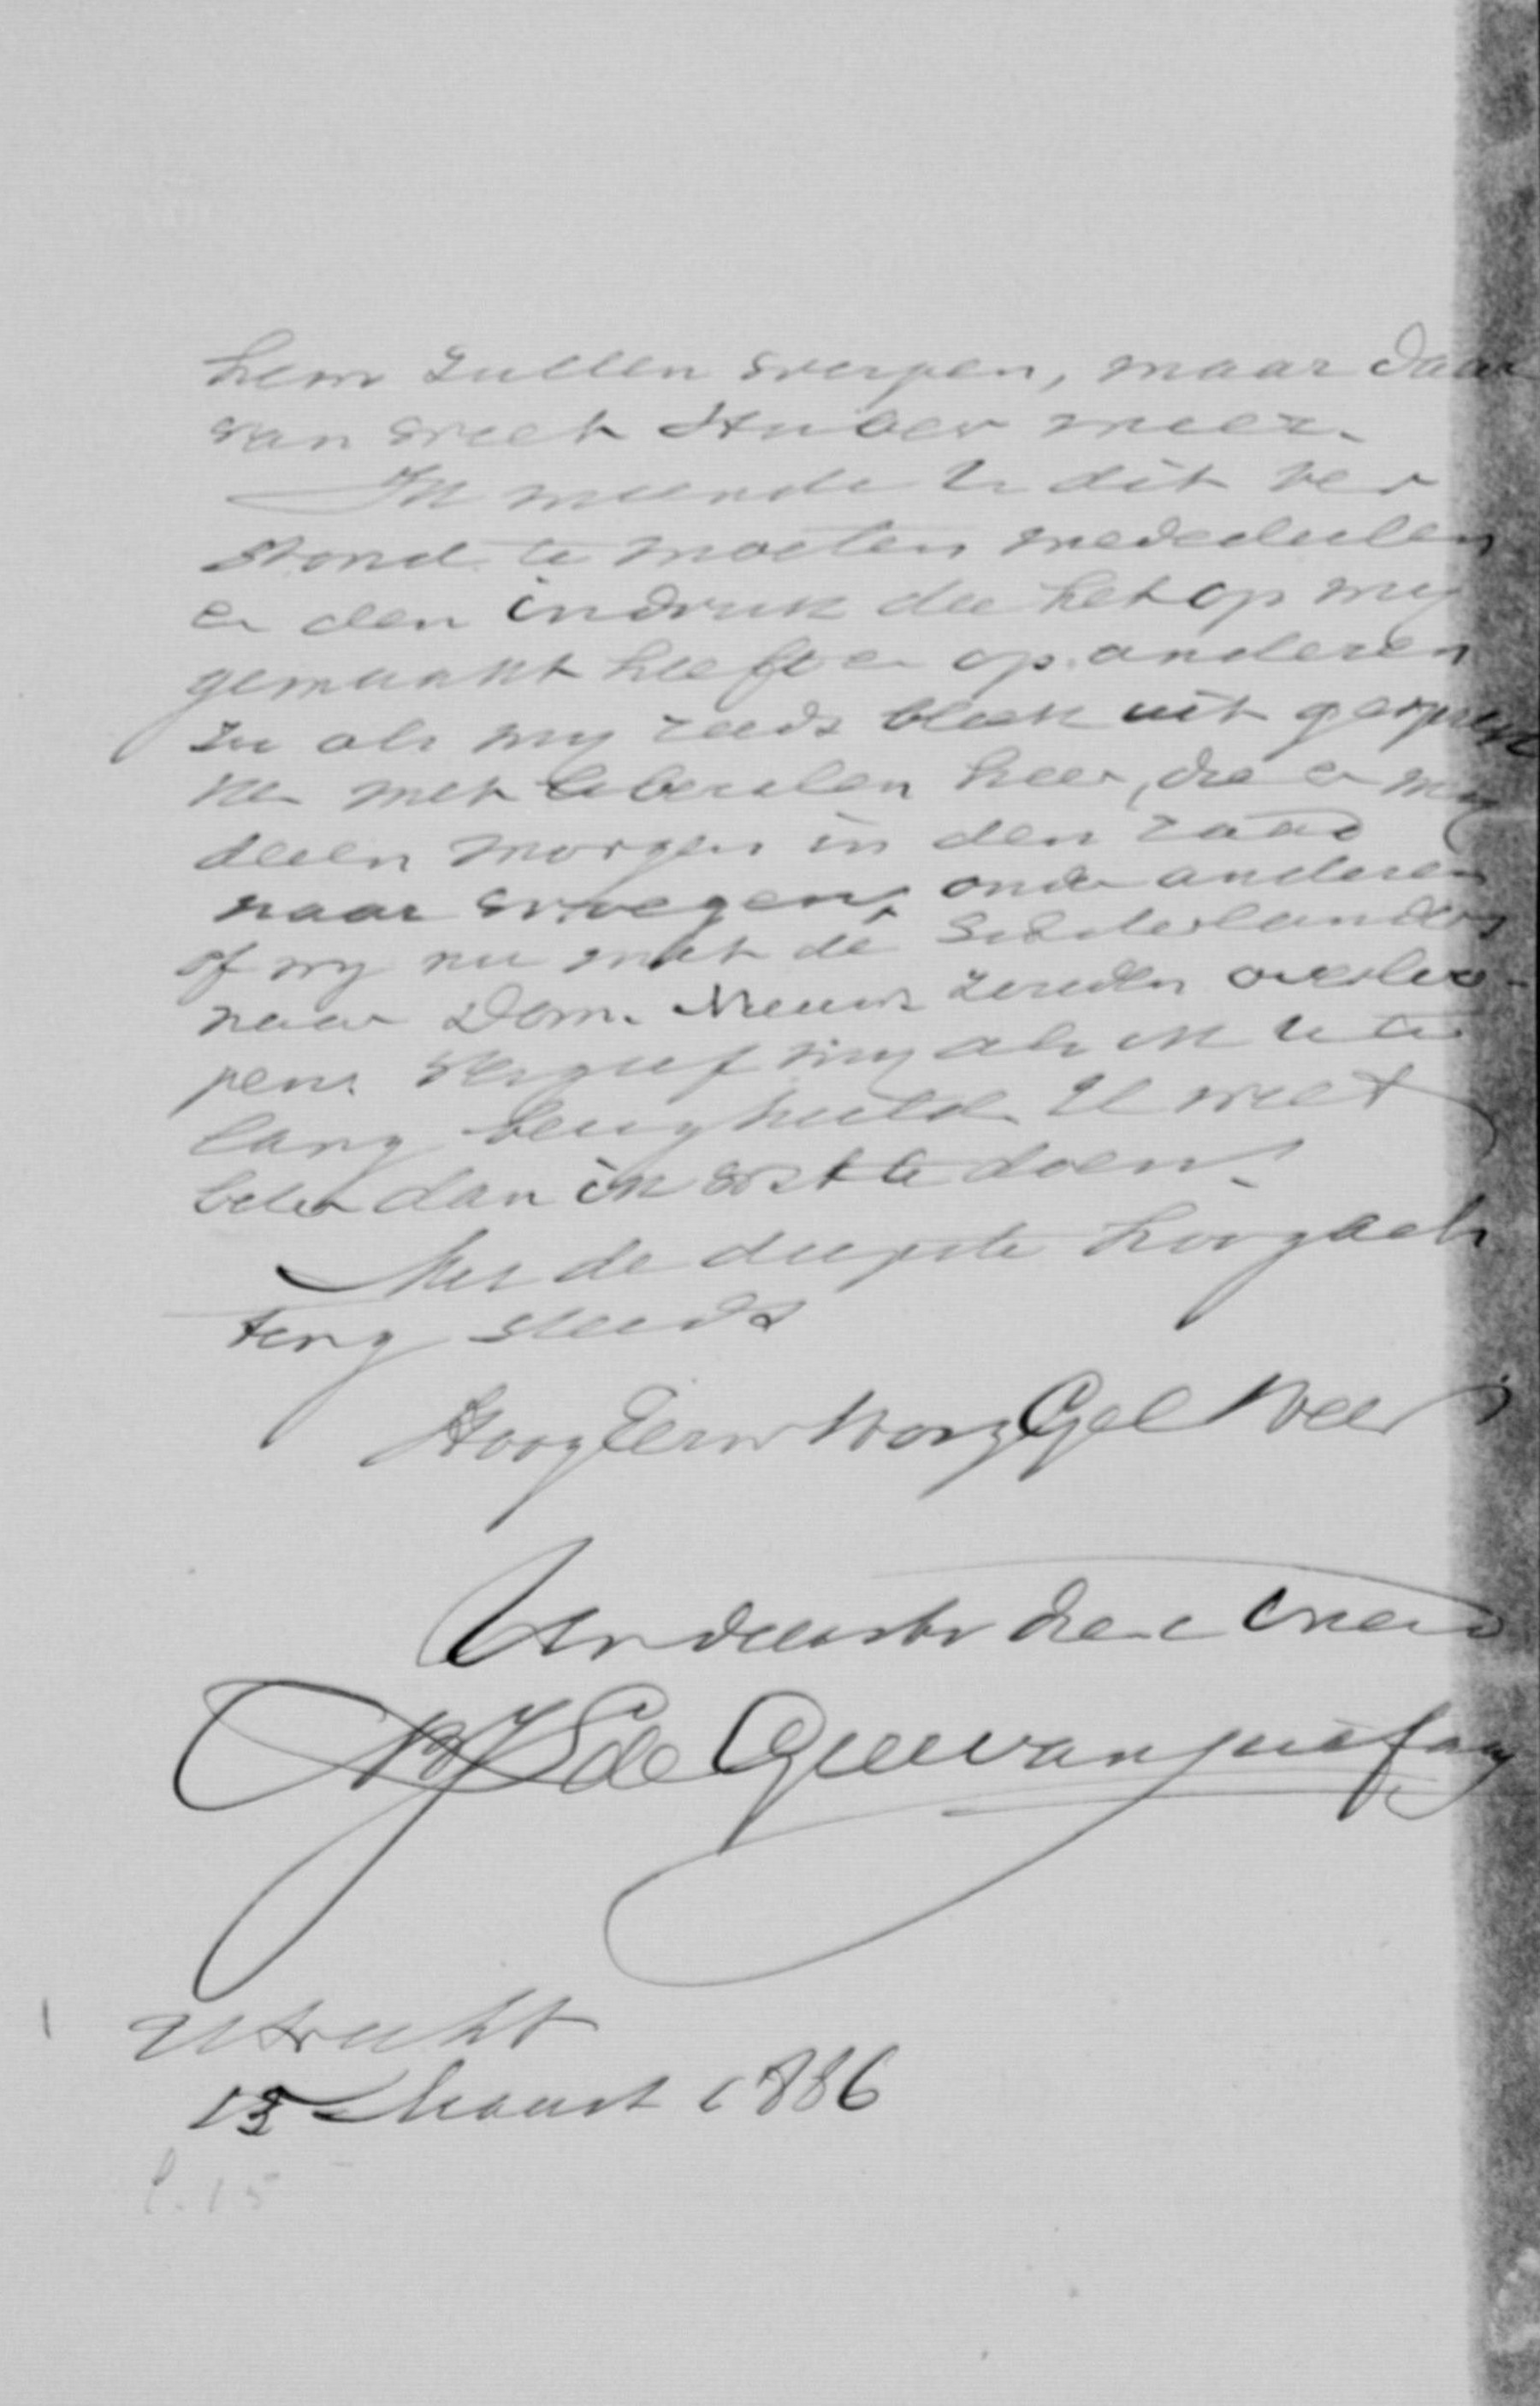 hem zullen werpen, maar daar
van weet Huber meer.
Ik meende U dit ter
stond te moeten mededeelen
en den indruk die het op mij
gemaakt heeft en op anderen
zoo als mij reeds bleek uit gesprek
ken met liberalen heer, die er mij
dezen morgen in den raad
naar vroegen, onder anderen
of wij nu met de
naar Dom. zouden overloo-
pen. Vergeef mij als ik U te
lang bezig hield. U weet
beter dan ik wat te doen.
Met de diepste hoogach
ting steeds
HoogEerw HoogGel Heer
Uw
de Geer van Jutfaas
Utrecht
13 Maart 1886
15